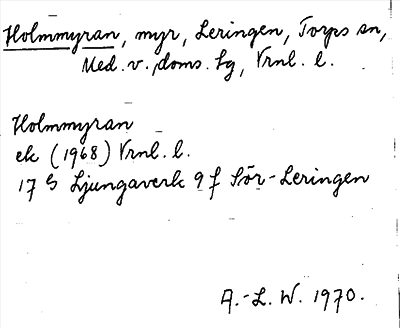 Holmmyran, myr, Leringen, Torps sn,
Med. v. doms. lg, Vrnl. l.
Holmmyran
ek (1968) Vrnl. l.
17 G Ljungaverk 9 f Sör-Leringen
A.-L. W. 1970.